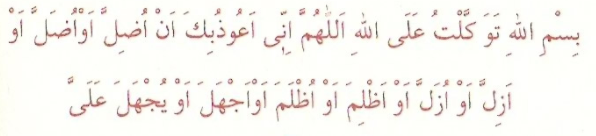 بِسْمِ اللهِ تَوَ كَّلْتُ عَلَى اللهِ اَللّٰهُمَّ اِنِّى اَعُوذُبِكَ اَنْ اُضِلَّ اَوْاُضَلَّ اَوْ
اَزِلَّ اَوْ اُزَلَّ اَوْ اَظْلِمَ اَوْ اُظْلَمَ اَوْاَجْهَلَ اَوْ يُجْهَلَ عَلَىَّ